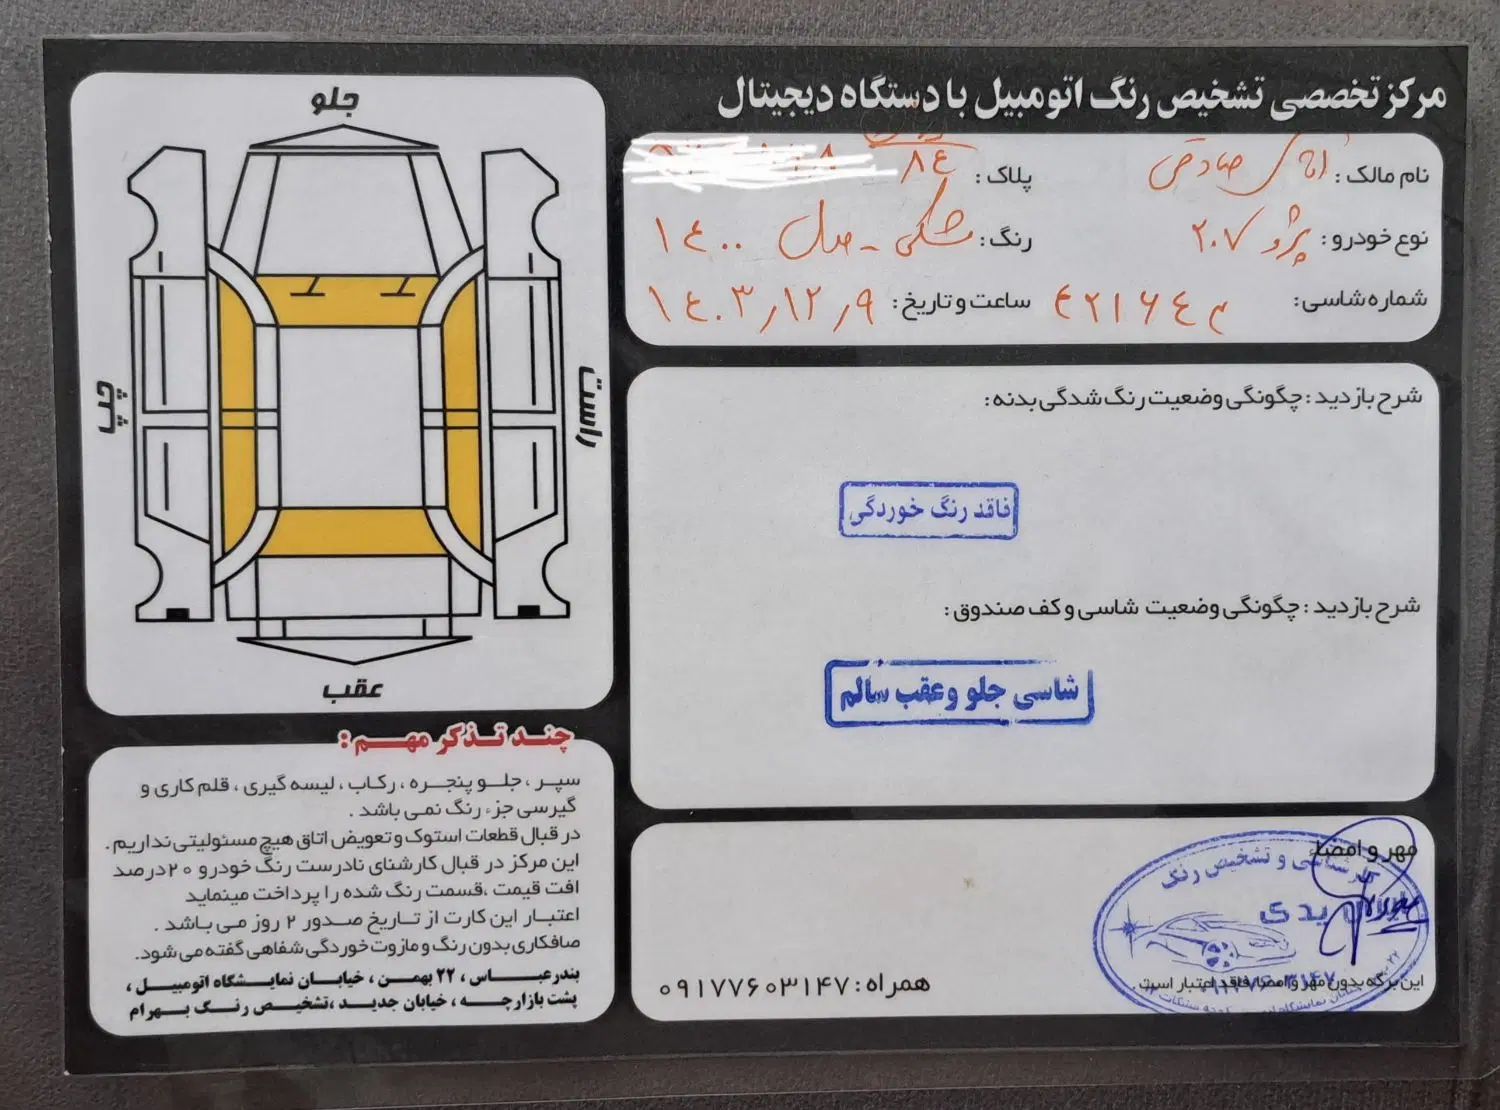 مرکز تخصصی تشخیص رنگ اتومبیل با دستگاه دیجیتال
نام مالک : آقای صادقی
پلاک : ۸۴
نوع خودرو : پژو ۲۰۷
رنگ : مشکی - مدل ۱۴۰۰
شماره شاسی :
ساعت و تاریخ : ۱۴۰۳/۱۲/۹
شرح بازدید : چگونگی وضعیت رنگ شدگی بدنه :
فاقد رنگ خوردگی
شرح بازدید : چگونگی وضعیت شاسی و کف صندوق :
شاسی جلو و عقب سالم
مهر و امضاء
کارشناسی و تشخیص رنگ
این برگه بدون مهر و امضا فاقد اعتبار است .
همراه : ۰۹۱۷۷۶۰۳۱۴۷
جلو
چپ
راست
عقب
چند تذکر مهم :
سپر ، جلو پنجره ، رکاب ، لیسه گیری ، قلم کاری و
گیرسی جزء رنگ نمی باشد .
در قبال قطعات استوک و تعویض اتاق هیچ مسئولیتی نداریم .
این مرکز در قبال کارشنای نادرست رنگ خودرو ۲۰ درصد
افت قیمت ،قسمت رنگ شده را پرداخت مینماید
اعتبار این کارت از تاریخ صدور ۲ روز می باشد .
صافکاری بدون رنگ و مازوت خوردگی شفاهی گفته می شود.
بندرعباس ، ۲۲ بهمن ، خیابان نمایشگاه اتومبیل ،
پشت بازارچه ، خیابان جدید ،تشخیص رنگ بهرام